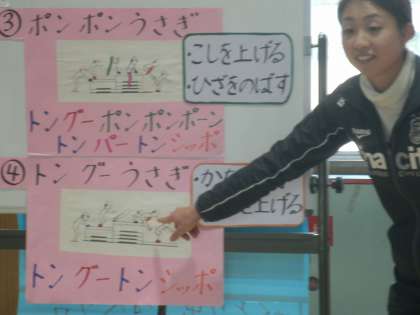 ③ ポンポンうさぎ
・こしを上げる
・ひざをのばす
トングーポンポンポーン
トンパートンシッポ
④ トングーうさぎ
を上げる
トングートンシッポ